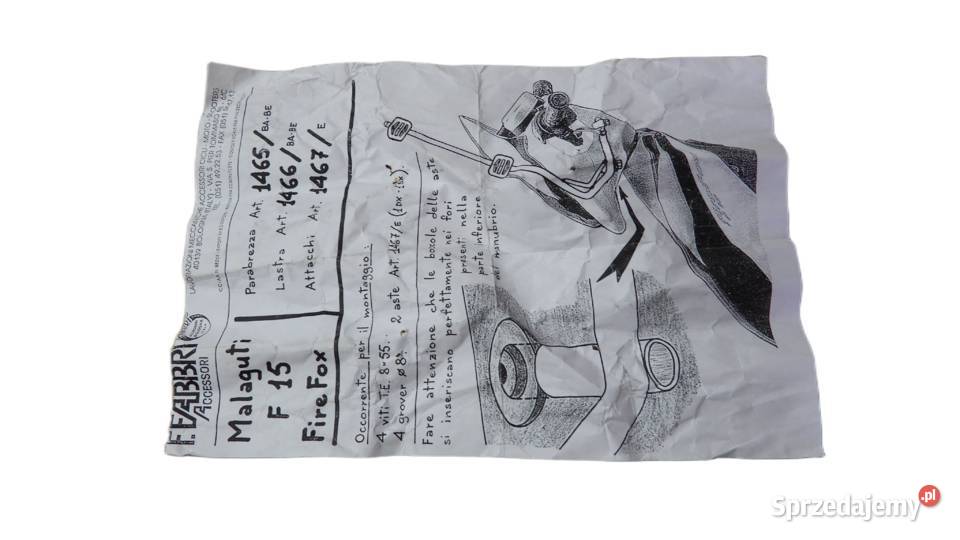 F.FABBRI
ACCESSORI
LAVORAZIONI MECCANICHE ACCESSORI CICLI - MOTO - SCOOTERS
40139 BOLOGNA (ITALY) - VIA S. PIER TOMMASO
TEL. (051) 49.22.53 - FAX (051)
Malaguti
F 15
FireFox
Parabrezza Art. 1465/BA-BE
Lastra Art. 1466/BA-BE
Attacchi Art. 1467/E
Occorrente per il montaggio:
4 viti T.E. 8-55. 2 aste Art. 1467/E (1DX-1SX)
4 grover ø8.
Fare attenzione che le boxole delle aste
si inseriscano perfettamente nei fori
presenti nella
parte inferiore
del manubrio.
Sprzedajemy.pl